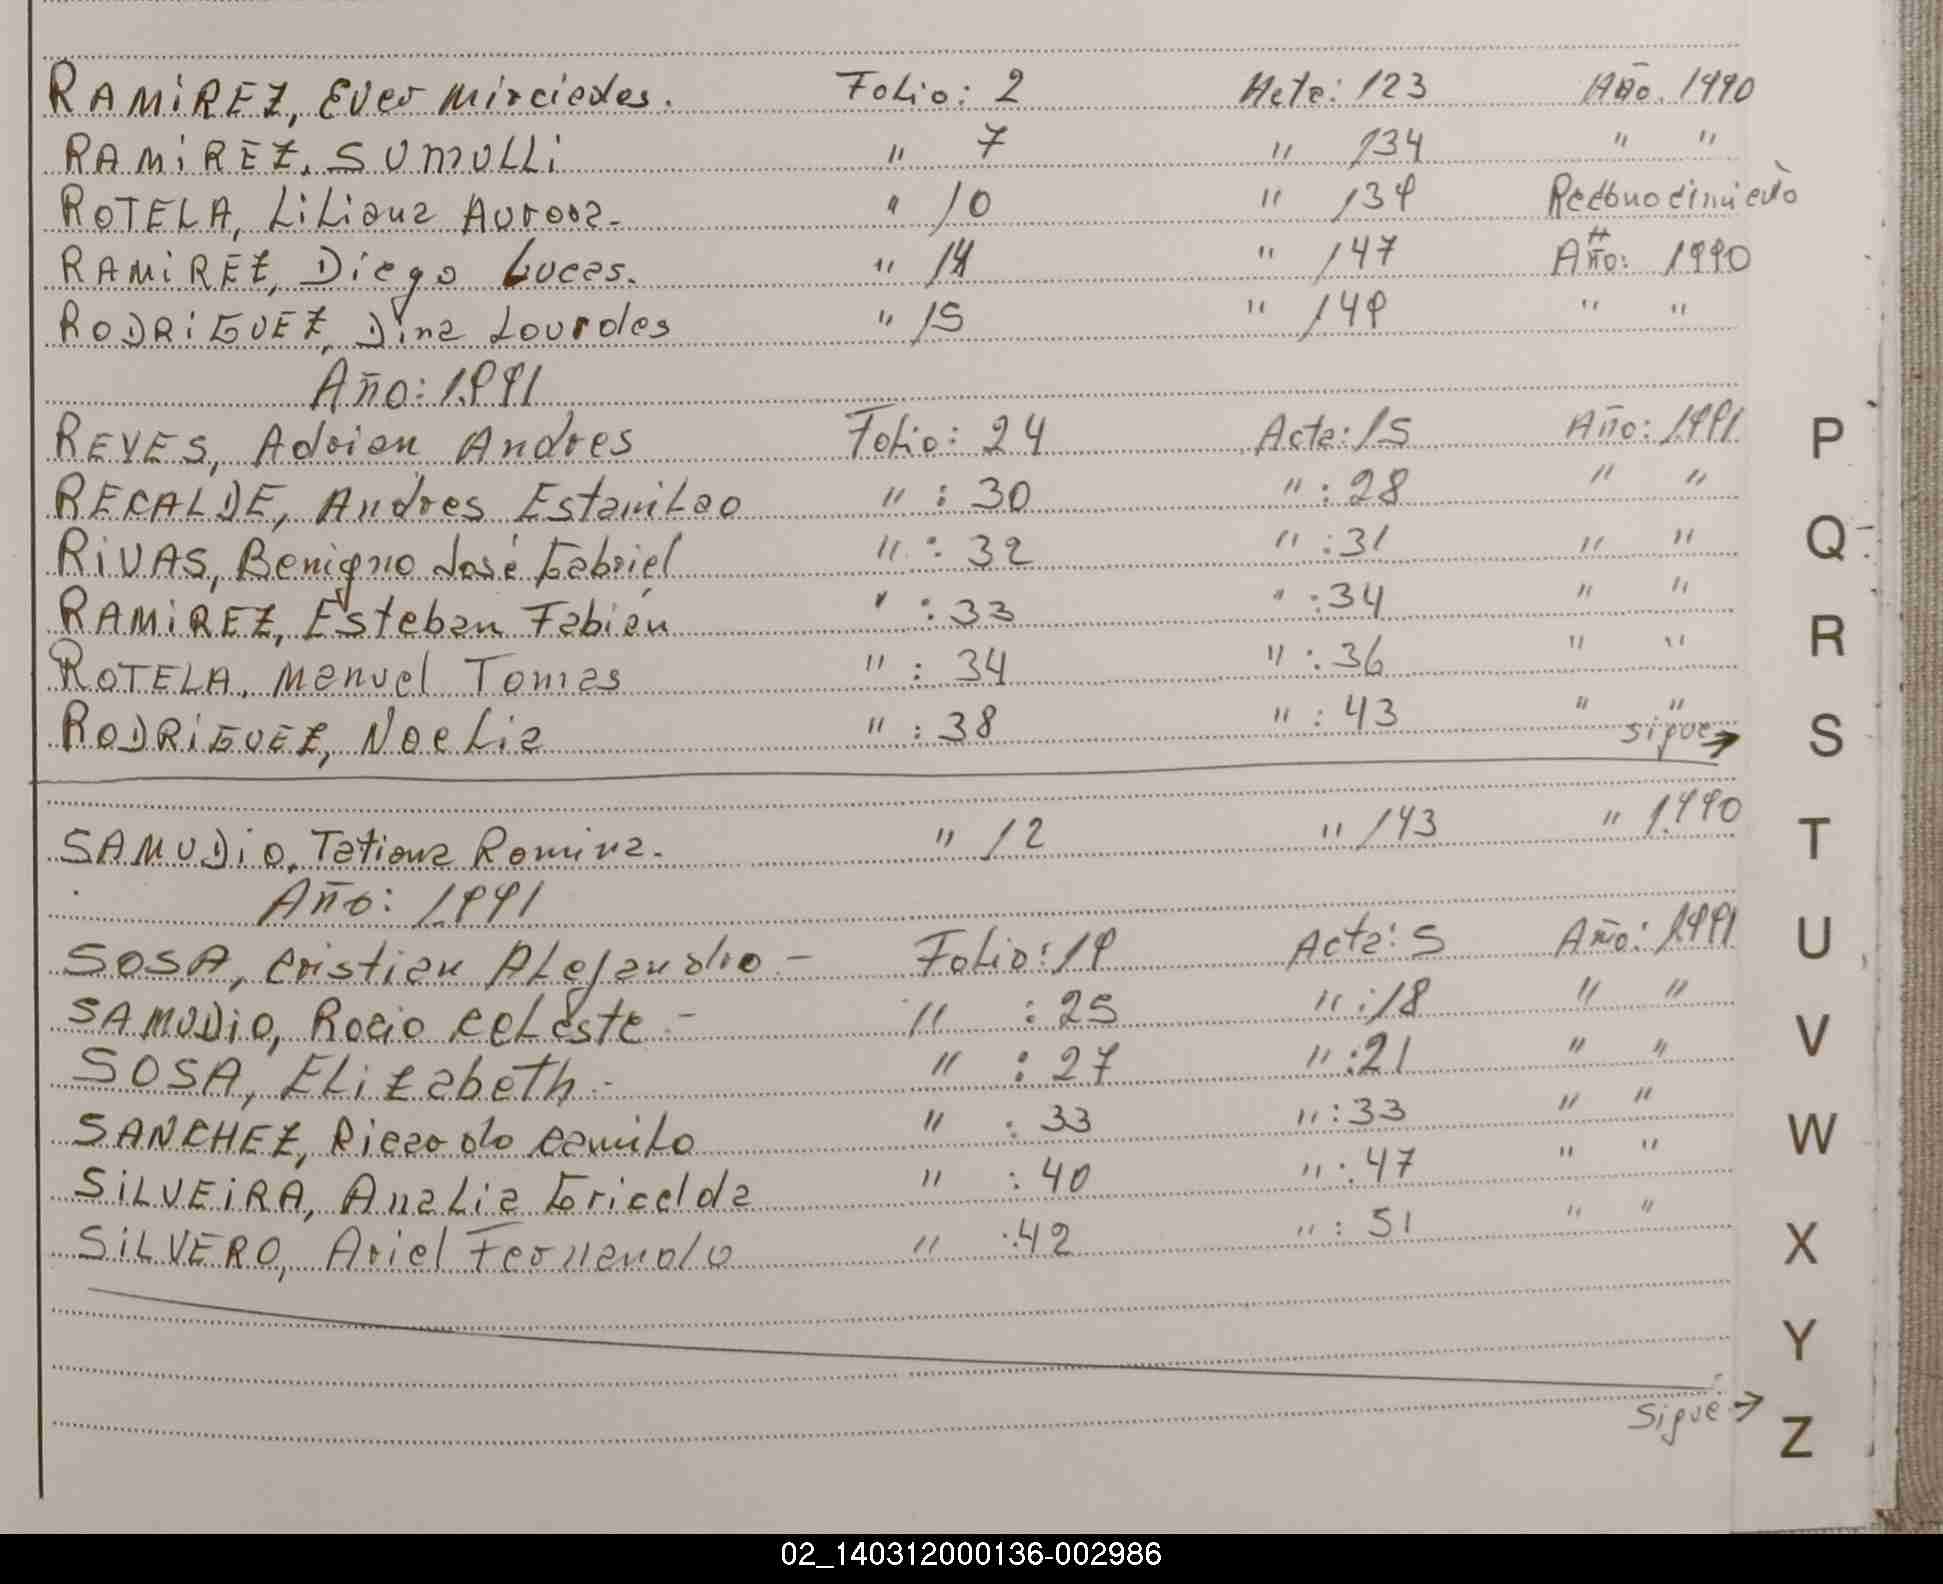 RAMIREZ, Ever Mirciedes. Folio: 2 Acta: 123 Año. 1990
RAMIREZ, SUMULLI " 7 " 134 " "
ROTELA, Liliana Aurora- " 10 " 139 Reconocimiento
RAMIREZ, Diego Lucas. " 14 " 147 Año: 1990
RODRIGUEZ, Dina Lourdes " 15 " 149 " "
Año: 1.991
REYES, Adrian Andres Folio: 24 Acta: 15 Año: 1.991
RECALDE, Andres Estanilao " : 30 " : 28 " "
RIVAS, Benigno José Gabriel " : 32 " : 31 " "
RAMIREZ, Esteban Fabián " : 33 " : 34 " "
ROTELA, Manuel Tomas " : 34 " : 36 " "
RODRIGUEZ, Noelia " : 38 " : 43 " "
sigue →
SAMUDIO, Tatiana Romina. " 12 " 143 " 1.990
Año: 1.991
SOSA, Cristian Alejandro - Folio: 19 Acta: 5 Año: 1.991
SAMUDIO, Rocio Celeste - " : 25 " : 18 " "
SOSA, Elizabeth - " : 27 " : 21 " "
SANCHEZ, Ricardo Camilo " : 33 " : 33 " "
SILVEIRA, Analia Gricelda " : 40 " : 47 " "
SILVERO, Ariel Fernando " : 42 " : 51 " "
Sigue →
P
Q
R
S
T
U
V
W
X
Y
Z
02_140312000136-002986